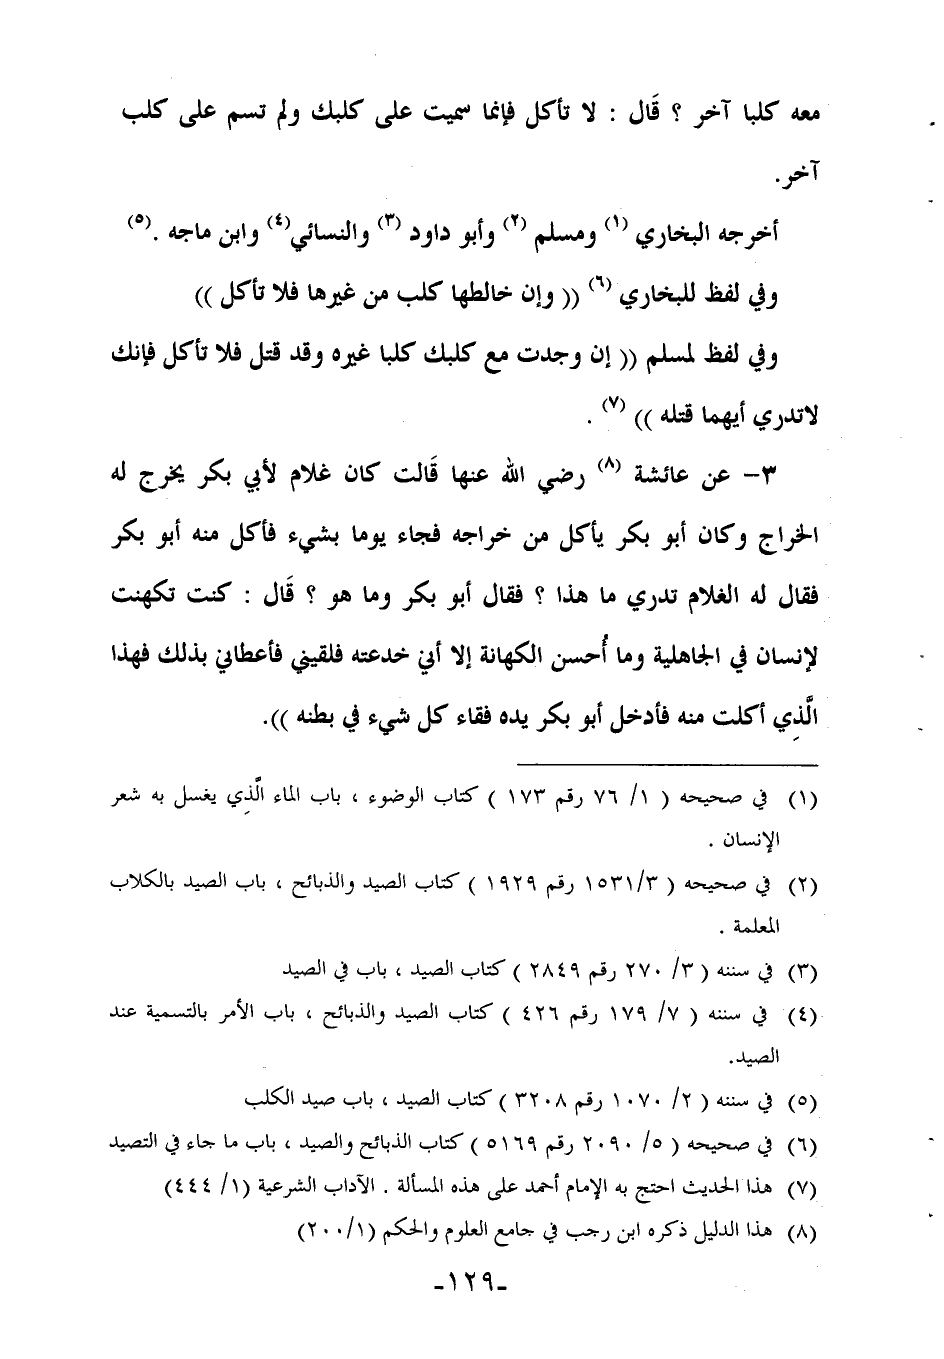 معه كلبا آخر ؟ قَال : لا تأكل فإنما سميت على كلبك ولم تسم على كلب
آخر.
أخرجه البخاري (١) ومسلم (٢) وأبو داود (٣) والنسائي(٤) وابن ماجه .(٥)
وفي لفظ للبخاري (٦) (( وإن خالطها كلب من غيرها فلا تأكل ))
وفي لفظ لمسلم (( إن وجدت مع كلبك كلبا غيره وقد قتل فلا تأكل فإنك
لاتدري أيهما قتله )) (٧) .
٣– عن عائشة (٨) رضي الله عنها قَالت كان غلام لأبي بكر يخرج له
الخراج وكان أبو بكر يأكل من خراجه فجاء يوما بشيء فأكل منه أبو بكر
فقال له الغلام تدري ما هذا ؟ فقال أبو بكر وما هو ؟ قَال : كنت تكهنت
لإنسان في الجاهلية وما أُحسن الكهانة إلا أني خدعته فلقيني فأعطاني بذلك فهذا
الَّذِي أكلت منه فأدخل أبو بكر يده فقاء كل شيء في بطنه )).
(١) في صحيحه ( ١/ ٧٦ رقم ١٧٣ ) كتاب الوضوء ، باب الماء الَّذِي يغسل به شعر
الإنسان .
(٢) في صحيحه ( ١٥٣١/٣ رقم ١٩٢٩ ) كتاب الصيد والذبائح ، باب الصيد بالكلاب
المعلمة .
(٣) في سننه ( ٣/ ٢٧٠ رقم ٢٨٤٩ ) كتاب الصيد ، باب في الصيد
(٤) في سننه ( ٧/ ١٧٩ رقم ٤٢٦ ) كتاب الصيد والذبائح ، باب الأمر بالتسمية عند
الصيد.
(٥) في سننه ( ٢/ ١٠٧٠ رقم ٣٢٠٨ ) كتاب الصيد ، باب صيد الكلب
(٦) في صحيحه ( ٥/ ٢٠٩٠ رقم ٥١٦٩ ) كتاب الذبائح والصيد ، باب ما جاء في التصيد
(٧) هذا الحديث احتج به الإمام أحمد على هذه المسألة . الآداب الشرعية (١/ ٤٤٤)
(٨) هذا الدليل ذكره ابن رجب في جامع العلوم والحكم (٢٠٠/١)
-١٢٩-